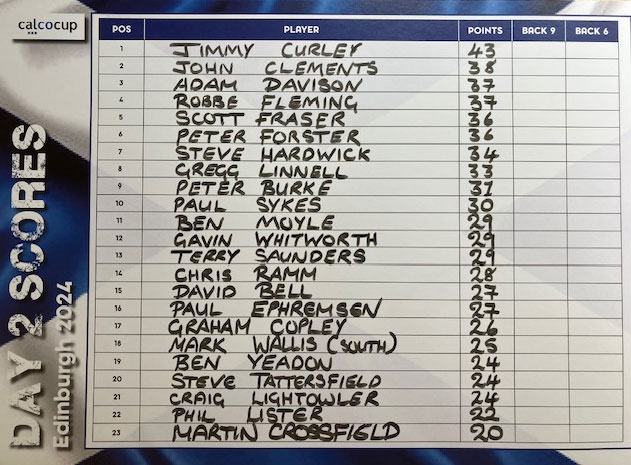 calcocup
DAY 2 SCORES
Edinburgh 2024
POS PLAYER POINTS BACK 9 BACK 6
1 JIMMY CURLEY 43
2 JOHN CLEMENTS 38
3 ADAM DAVISON 37
4 ROBBE FLEMING 37
5 SCOTT FRASER 36
6 PETER FORSTER 36
7 STEVE HARDWICK 34
8 GREGG LINNELL 33
9 PETER BURKE 31
10 PAUL SYKES 30
11 BEN MOYLE 29
12 GAVIN WHITWORTH 29
13 TERRY SAUNDERS 29
14 CHRIS RAMM 28
15 DAVID BELL 27
16 PAUL EPHREMSEN 27
17 GRAHAM COPLEY 26
18 MARK WALLIS (SOUTH) 25
19 BEN YEADON 24
20 STEVE TATTERSFIELD 24
21 CRAIG LIGHTOWLER 24
22 PHIL LISTER 22
23 MARTIN CROSSFIELD 20